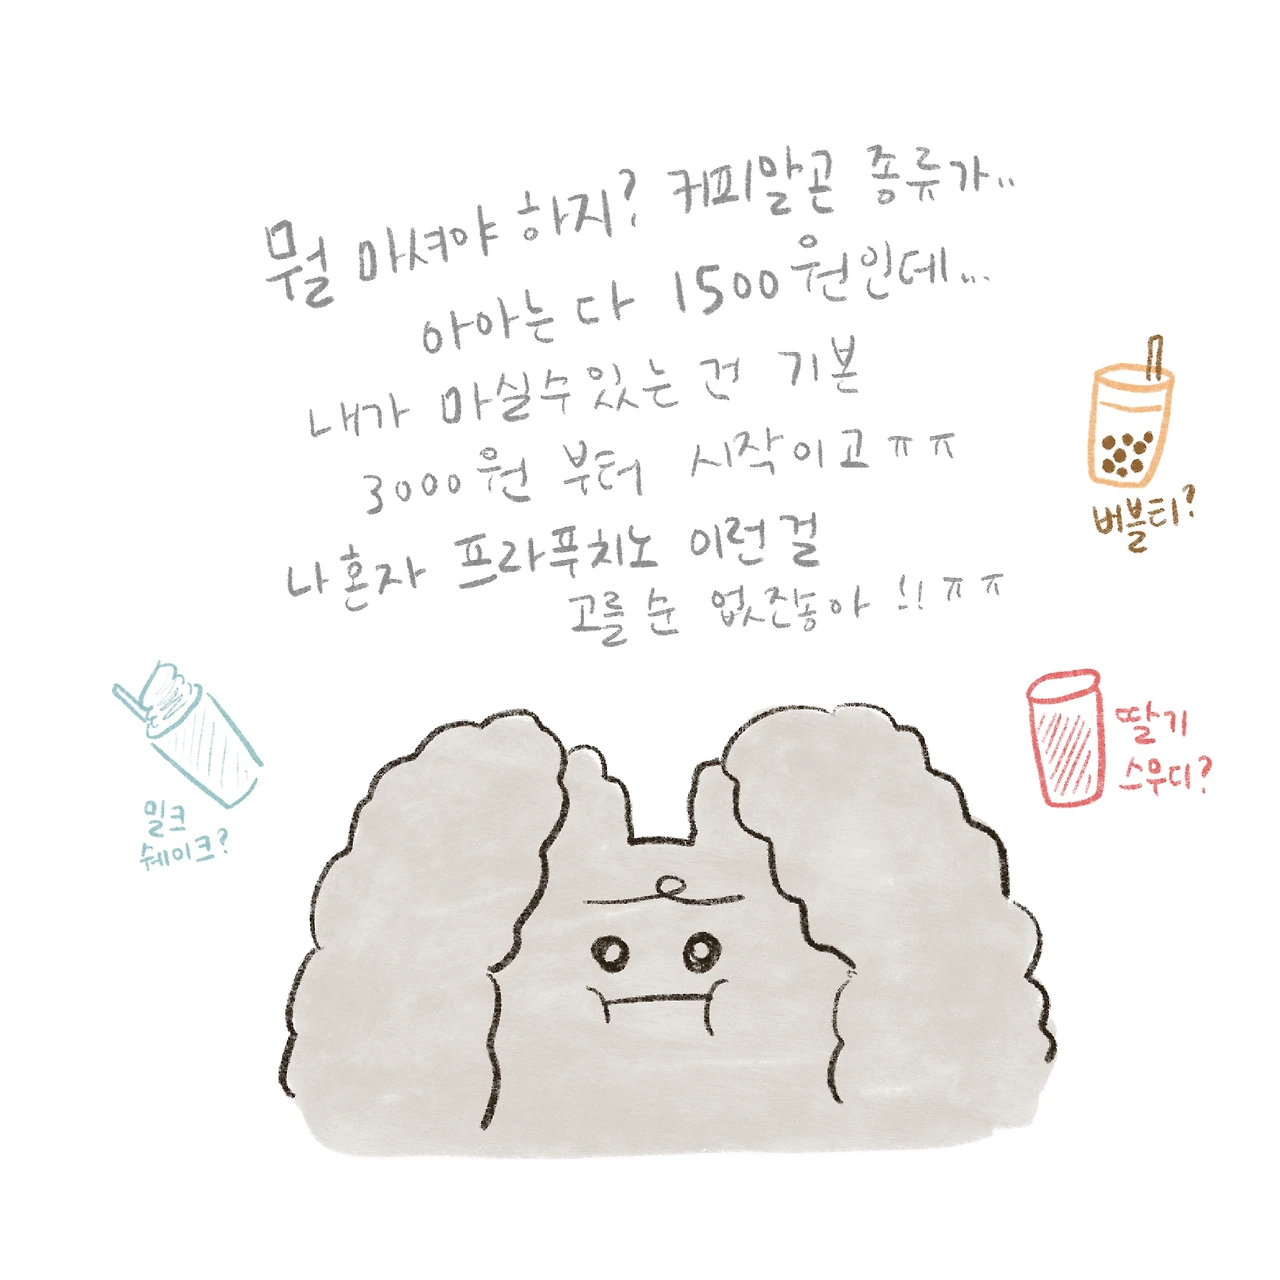 뭘 마셔야 하지? 커피말곤 종류가..
아아는 다 1500원인데...
내가 마실수있는건 기본
3000원 부터 시작이고ㅠㅠ
나혼자 프라푸치노 이런걸
고를순 없잔아!!ㅠㅠ
버블티?
딸기
스무디?
밀크
쉐이크?